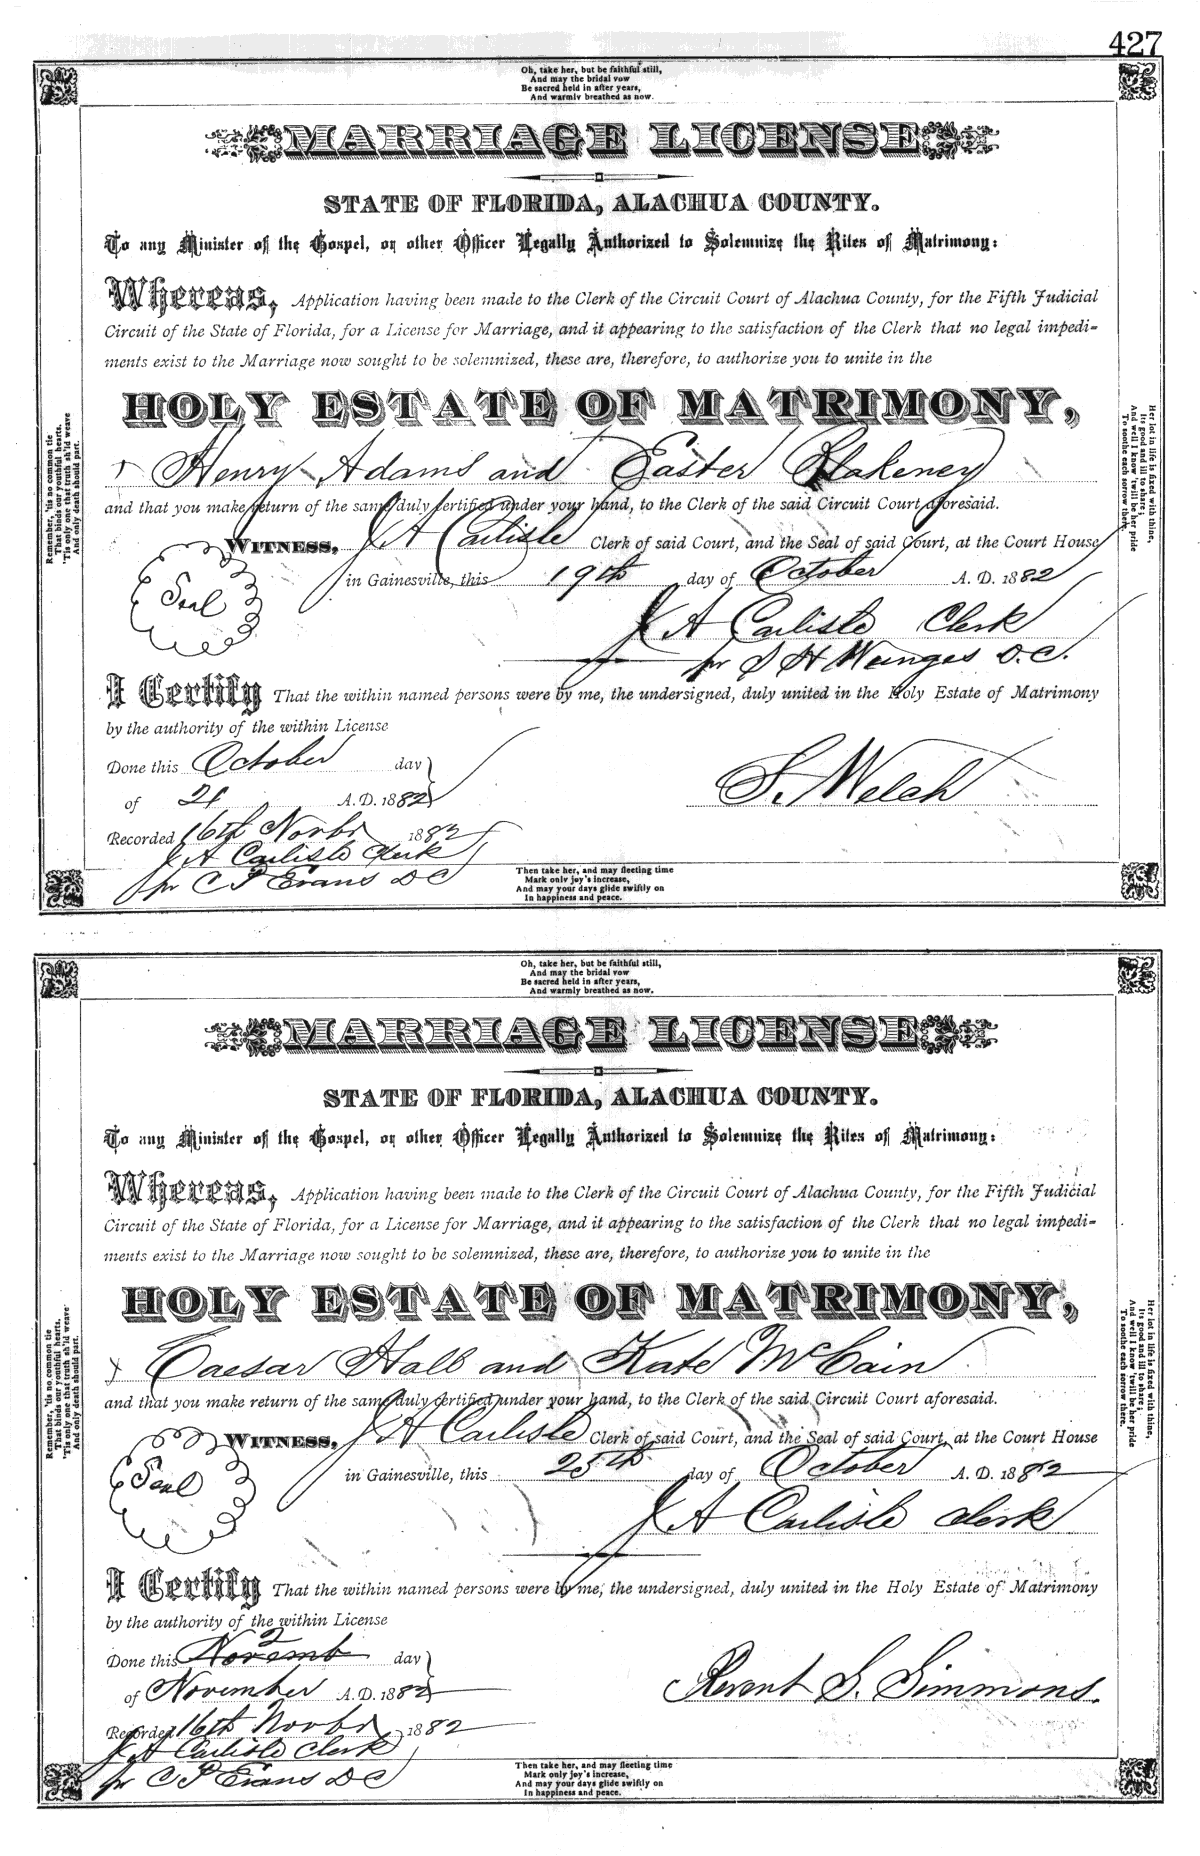 427
Oh, take her, but be faithful still,
And may the bridal vow
Be sacred held in after years,
And warmly breathed as now.
MARRIAGE LICENSE
STATE OF FLORIDA, ALACHUA COUNTY.
To any Minister of the Gospel, or other Officer Legally Authorized to Solemnize the Rites of Matrimony:
Whereas, Application having been made to the Clerk of the Circuit Court of Alachua County, for the Fifth Judicial
Circuit of the State of Florida, for a License for Marriage, and it appearing to the satisfaction of the Clerk that no legal impedi-
ments exist to the Marriage now sought to be solemnized, these are, therefore, to authorize you to unite in the
HOLY ESTATE OF MATRIMONY,
Henry Adams and Easter Blakeney
and that you make return of the same duly certified under your hand, to the Clerk of the said Circuit Court aforesaid.
WITNESS, J A Carlisle Clerk of said Court, and the Seal of said Court, at the Court House
Seal
in Gainesville, this 19th day of October A. D. 1882
J A Carlisle Clerk
pr S H D.C.
I Certify That the within named persons were by me, the undersigned, duly united in the Holy Estate of Matrimony
by the authority of the within License
Done this October day
of 21 A.D. 1882
S. Welch
Recorded 16th Novbr 1882
J A Carlisle Clerk
pr C P Evans D C
Remember, 'tis no common tie
That binds our youthful hearts,
'Tis only one that truth sh'ld weave
And only death should part.
Her lot in life is fixed with thine,
Its good and ill to share;
And well I know 'twill be her pride
To soothe each sorrow there.
Then take her, and may fleeting time
Mark only joy's increase,
And may your days glide swiftly on
In happiness and peace.
Oh, take her, but be faithful still,
And may the bridal vow
Be sacred held in after years,
And warmly breathed as now.
MARRIAGE LICENSE
STATE OF FLORIDA, ALACHUA COUNTY.
To any Minister of the Gospel, or other Officer Legally Authorized to Solemnize the Rites of Matrimony:
Whereas, Application having been made to the Clerk of the Circuit Court of Alachua County, for the Fifth Judicial
Circuit of the State of Florida, for a License for Marriage, and it appearing to the satisfaction of the Clerk that no legal impedi-
ments exist to the Marriage now sought to be solemnized, these are, therefore, to authorize you to unite in the
HOLY ESTATE OF MATRIMONY,
Caesar Hall and Kate McCain
and that you make return of the same duly certified under your hand, to the Clerk of the said Circuit Court aforesaid.
WITNESS, J A Carlisle Clerk of said Court, and the Seal of said Court, at the Court House
Seal
in Gainesville, this 25th day of October A. D. 1882
J A Carlisle clerk
I Certify That the within named persons were by me, the undersigned, duly united in the Holy Estate of Matrimony
by the authority of the within License
2
Done this Novemb day
of November A.D. 1882
Revent S. Simmons.
Recorded 16th Novbr 1882
J A Carlisle Clerk
pr C P Evans D C
Remember, 'tis no common tie
That binds our youthful hearts.
'Tis only one that truth sh'ld weave
And only death should part.
Her lot in life is fixed with thine,
Its good and ill to share;
And well I know 'twill be her pride
To soothe each sorrow there.
Then take her, and may fleeting time
Mark only joy's increase,
And may your days glide swiftly on
In happiness and peace.